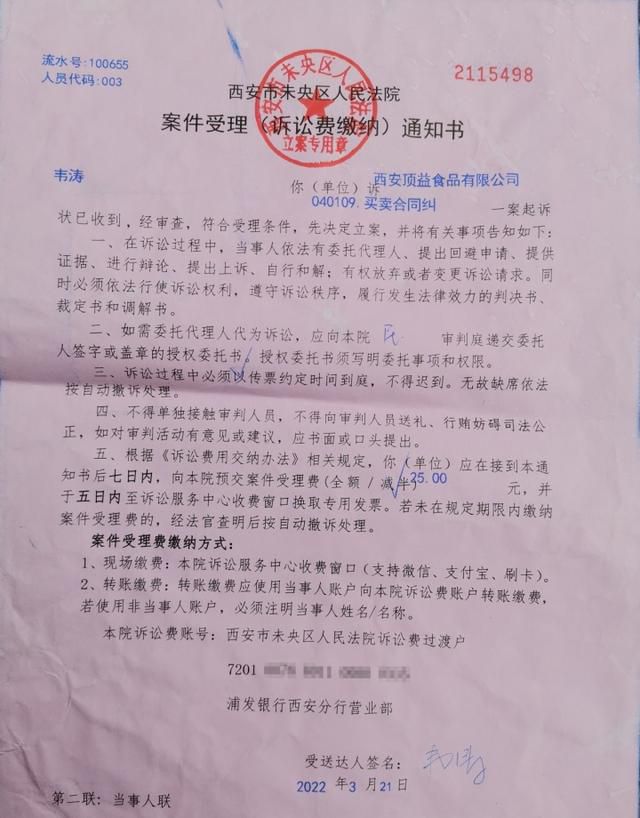 流水号:100655
人员代码:003
2115498
西安市未央区人民法院
立案专用章
西安市未央区人民法院
案件受理（诉讼费缴纳）通知书
韦涛
你（单位）诉 西安顶益食品有限公司
040109.买卖合同纠 一案起诉
状已收到，经审查，符合受理条件，先决定立案，并将有关事项告知如下：
一、在诉讼过程中，当事人依法有委托代理人、提出回避申请、提供
证据、进行辩论、提出上诉、自行和解；有权放弃或者变更诉讼请求。同
时必须依法行使诉讼权利，遵守诉讼秩序，履行发生法律效力的判决书、
裁定书和调解书。
二、如需委托代理人代为诉讼，应向本院 民 审判庭递交委托
人签字或盖章的授权委托书。授权委托书须写明委托事项和权限。
三、诉讼过程中必须以传票约定时间到庭，不得迟到。无故缺席依法
按自动撤诉处理。
四、不得单独接触审判人员，不得向审判人员送礼、行贿妨碍司法公
正，如对审判活动有意见或建议，应书面或口头提出。
五、根据《诉讼费用交纳办法》相关规定，你（单位）应在接到本通
知书后七日内，向本院预交案件受理费(全额 / 减半) 25.00 元，并
于五日内至诉讼服务中心收费窗口换取专用发票。若未在规定期限内缴纳
案件受理费的，经法官查明后按自动撤诉处理。
案件受理费缴纳方式：
1、现场缴费：本院诉讼服务中心收费窗口（支持微信、支付宝、刷卡）。
2、转账缴费：转账缴费应使用当事人账户向本院诉讼费账户转账缴费，
若使用非当事人账户，必须注明当事人姓名/名称。
本院诉讼费账号：西安市未央区人民法院诉讼费过渡户
7201
浦发银行西安分行营业部
受送达人签名： 韦涛
2022 年 3 月 21 日
第二联：当事人联